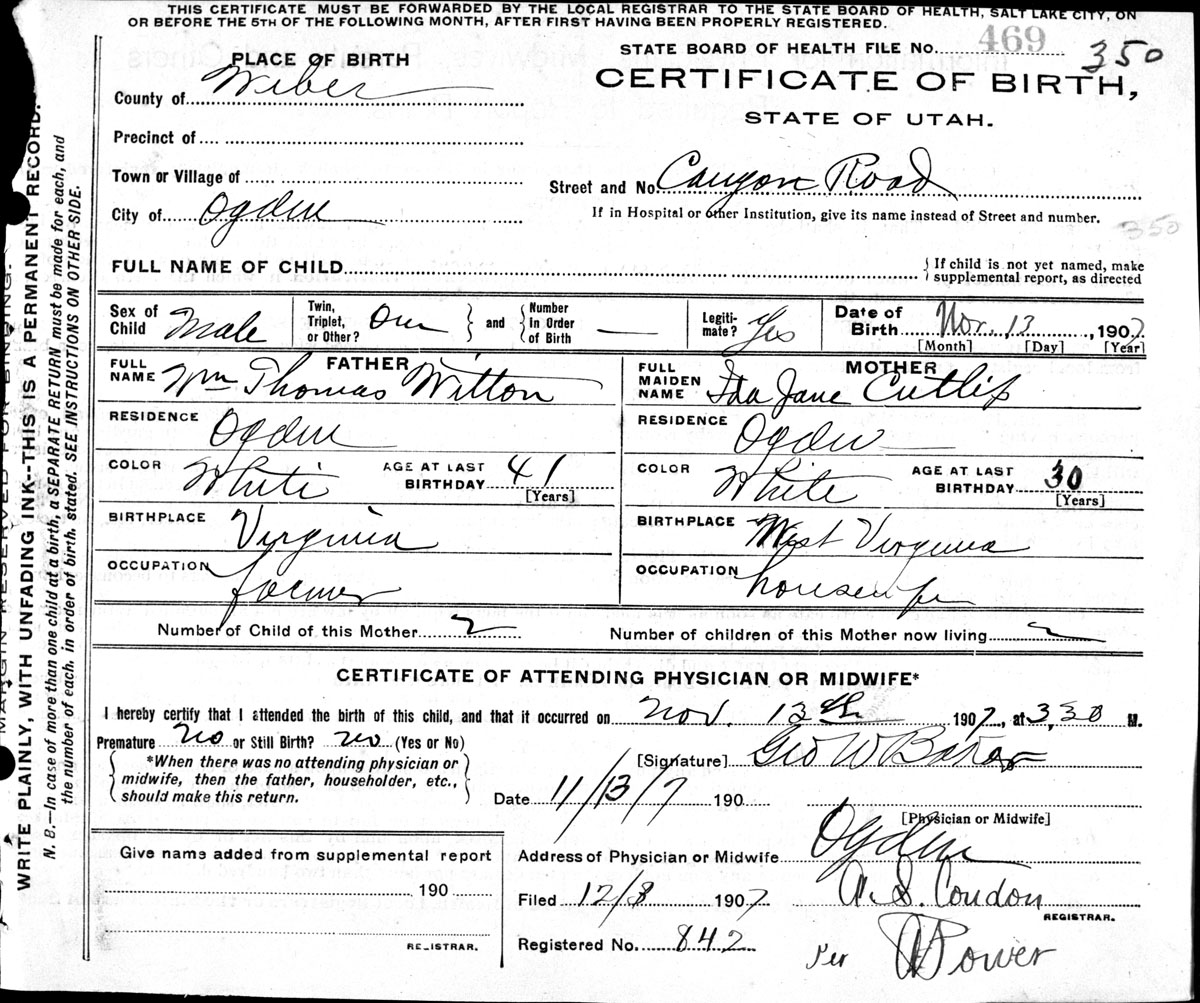 THIS CERTIFICATE MUST BE FORWARDED BY THE LOCAL REGISTRAR TO THE STATE BOARD OF HEALTH, SALT LAKE CITY, ON
OR BEFORE THE 5TH OF THE FOLLOWING MONTH, AFTER FIRST HAVING BEEN PROPERLY REGISTERED.
STATE BOARD OF HEALTH FILE No. 469 350
PLACE OF BIRTH
CERTIFICATE OF BIRTH,
County of Weber
STATE OF UTAH.
Precinct of
Town or Village of
Street and No. Canyon Road
City of Ogden
If in Hospital or other Institution, give its name instead of Street and number.
350
FULL NAME OF CHILD
{ If child is not yet named, make
supplemental report, as directed
Sex of Child Male
Twin, Triplet, or Other? One } and { Number in Order of Birth —
Legiti- mate? Yes
Date of Birth Nov. 13, 1907
[Month] [Day] [Year]
FATHER
FULL NAME Wm Thomas Witton
MOTHER
FULL MAIDEN NAME Ida Jane Cutlip
RESIDENCE Ogden
RESIDENCE Ogden
COLOR White AGE AT LAST BIRTHDAY 41 [Years]
COLOR White AGE AT LAST BIRTHDAY 30 [Years]
BIRTHPLACE Virginia
BIRTHPLACE West Virginia
OCCUPATION farmer
OCCUPATION housewife
Number of Child of this Mother 2
Number of children of this Mother now living 2
CERTIFICATE OF ATTENDING PHYSICIAN OR MIDWIFE*
I hereby certify that I attended the birth of this child, and that it occurred on Nov. 13th 1907, at 3,30 M.
Premature No or Still Birth? No (Yes or No)
[Signature] Geo W Baker
{ *When there was no attending physician or
midwife, then the father, householder, etc.,
should make this return. }
Date 11/13/7 190
[Physician or Midwife]
Give name added from supplemental report
190
REGISTRAR.
Address of Physician or Midwife Ogden
Filed 12/8 1907 A. S. Condon
REGISTRAR.
Registered No. 842 Per Power
MARGIN RESERVED FOR BINDING.
WRITE PLAINLY, WITH UNFADING INK--THIS IS A PERMANENT RECORD.
N. B.—In case of more than one child at a birth, a SEPARATE RETURN must be made for each, and
the number of each, in order of birth, stated. SEE INSTRUCTIONS ON OTHER SIDE.